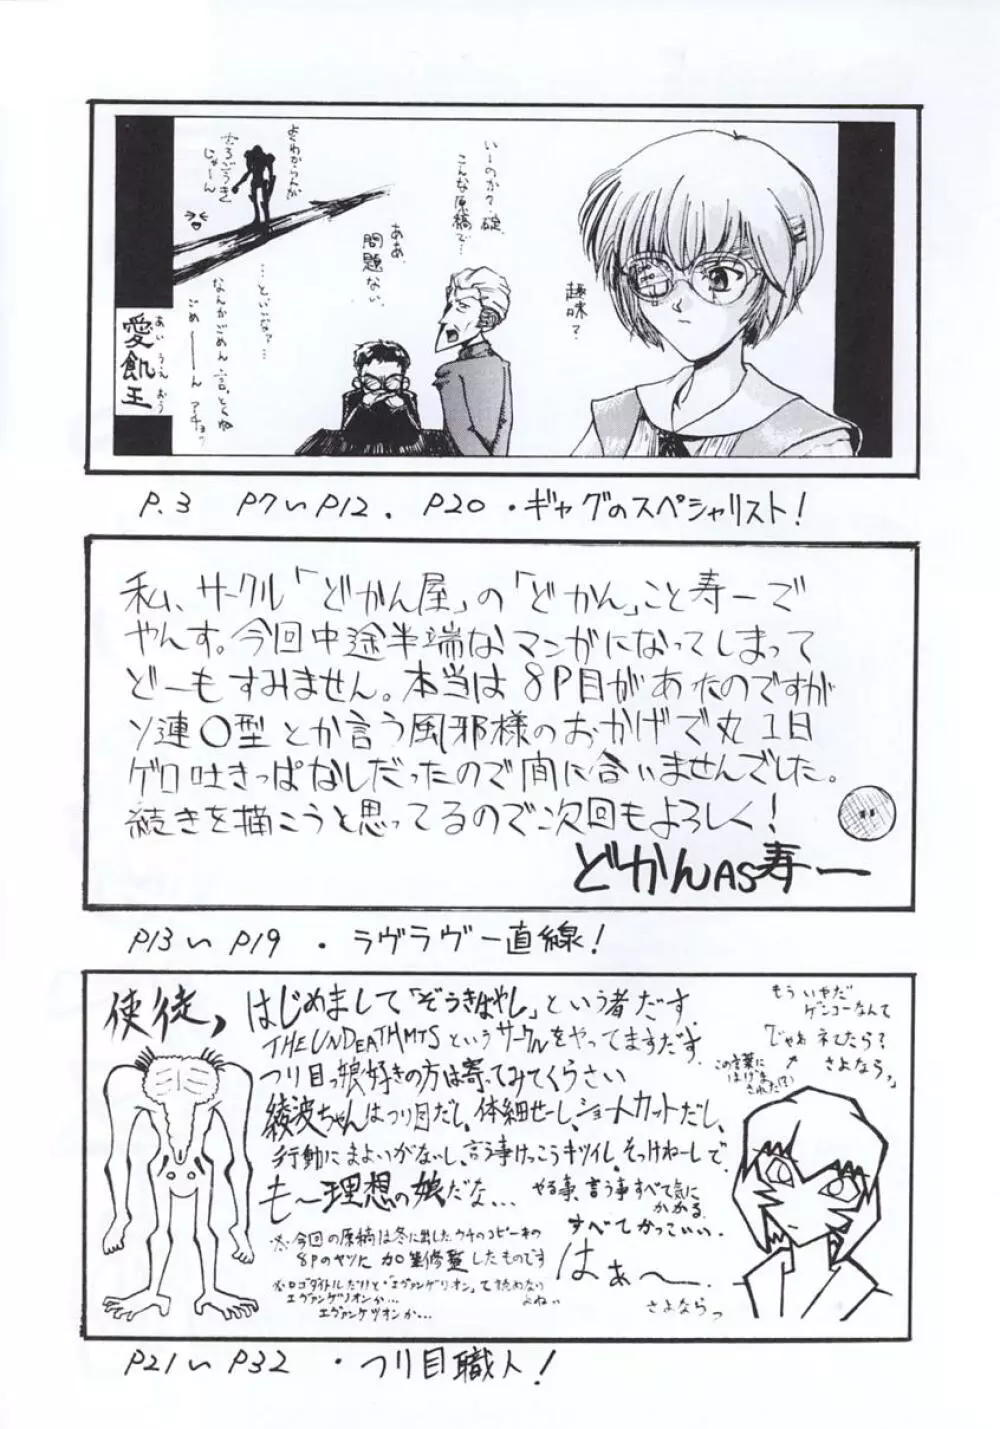 趣味？
いーのか？碇、
こんな原稿で…
ああ、
問題ない。
よくわからんが
じゃーん
…といいなァ…
なんかごめん言っとくね
ごめーーん
愛飢王
あい うえ おう
P.3 P7〜P12. P20・ギャグのスペシャリスト！
私、サークル「どかん屋」の「どかん」こと寿一で
やんす。今回中途半端なマンガになってしまって
どーもすみません。本当は8P目があったのですが
ソ連〇型とか言う風邪様のおかげで丸1日
ゲロ吐きっぱなしだったので間に合いませんでした。
続きを描こうと思ってるので次回もよろしく！
どかんAS寿一
P13〜P19・ラヴラヴ一直線！
使徒，
はじめまして「ぞうきばやし」という者だす
THE UNDEATHMTSというサークルをやってますだす.
つり目っ娘好きの方は寄ってみてくうさい
綾波ちゃんはつり目だし、体細せーし、ショートカットだし、
行動にまよいがないし、言う事けっこうキツイし、そっけねーしで
も〜理想の娘だな...
やる事、言う事すべて気に
かかる.
すべてかっこいい.
はぁ〜.
※今回の原稿は冬に出したウチのコピー本の
8Pのヤツに加筆修整したものです
※ロゴタイトルだけど“エヴァンゲリオン”て読めない
よねぃ
エヴァンゲリオンか...
エヴァンケツオンか...
もういやだ
ゲンコーなんて
じゃぁネてたら？
さよならっ
この言葉に
はげま
された(?)
さよならっ
P21〜P32・つり目職人！